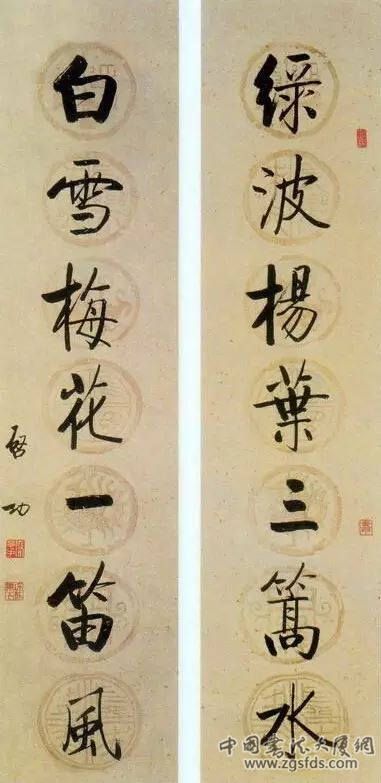 綠波楊葉三篙水
白雪梅花一笛風
啟功
中國書法大厦網
www.zgsfds.com